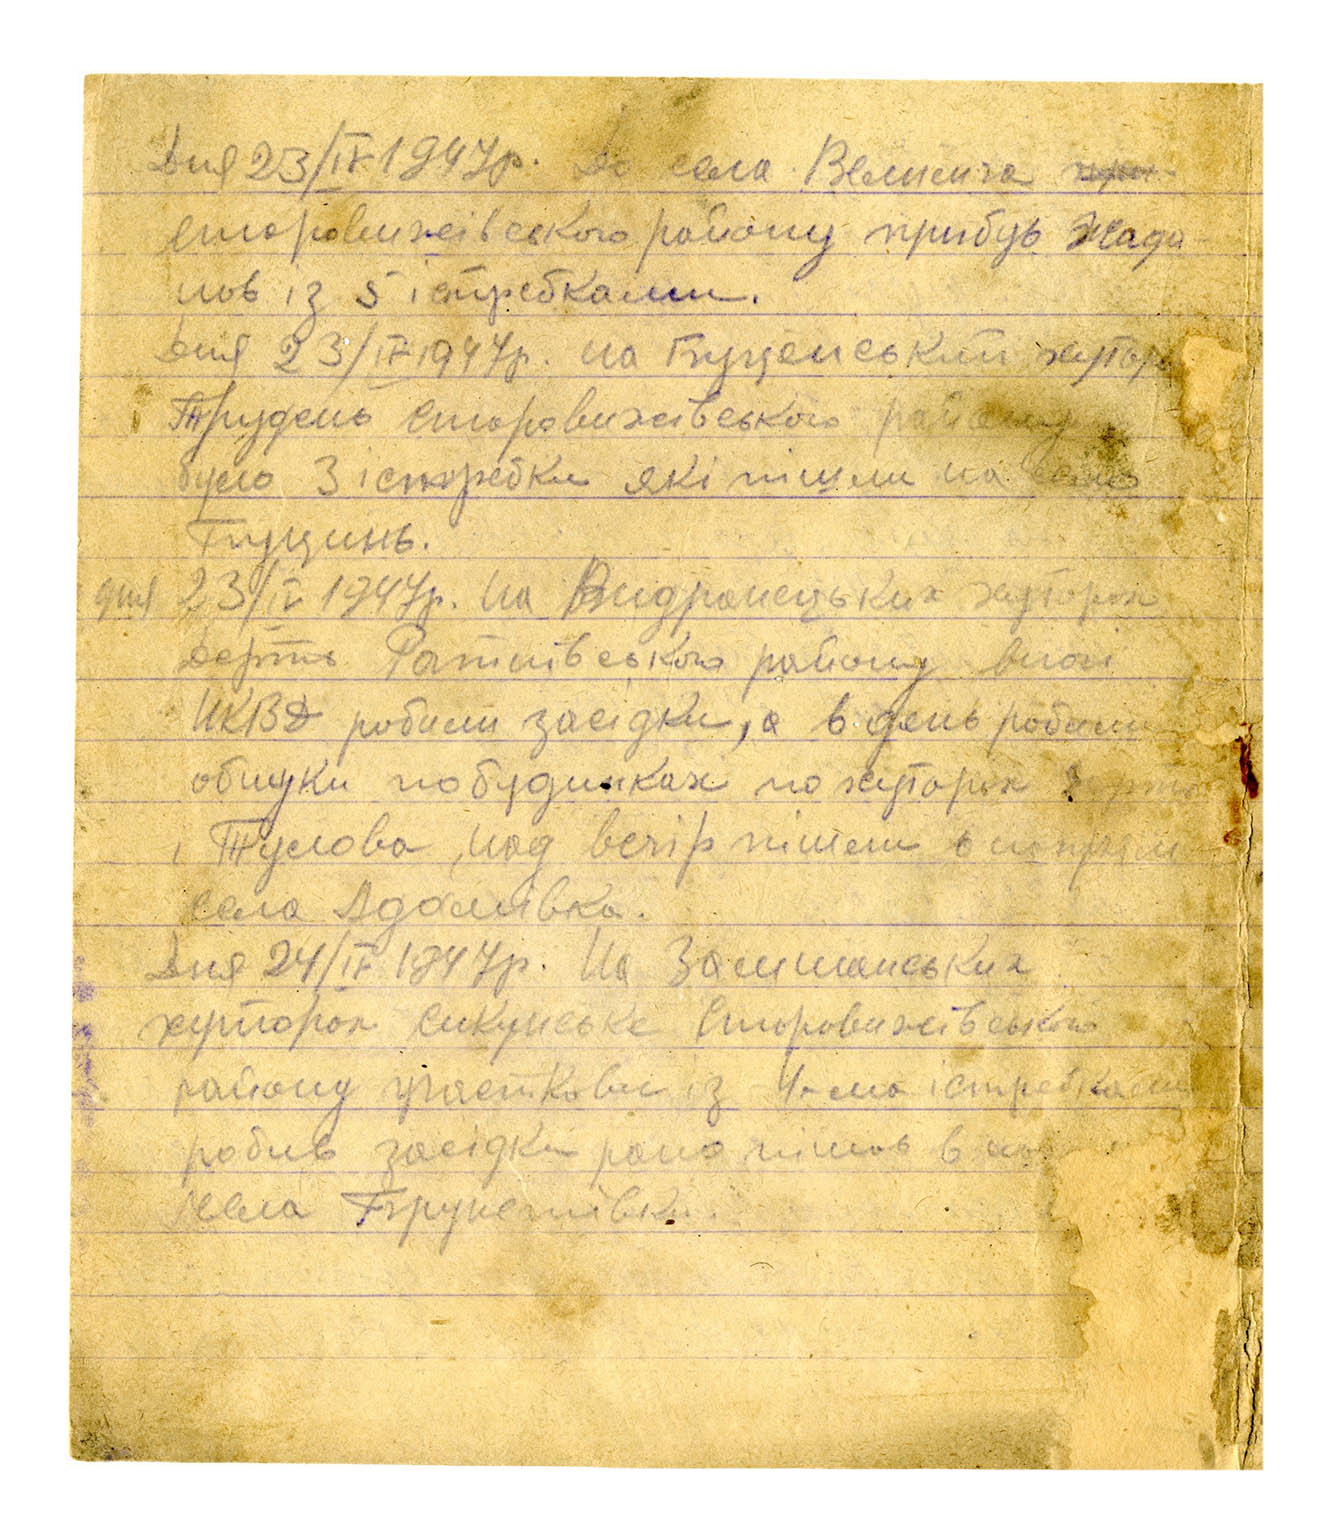 Дня 23/IV 1947р. До села Велимча
Старовижівського району прибув Жада
нов із 5 істребками.
Дня 23/IV 1947р. на Буценський хутор
Трудень Старовижівського району
було 3 істребки які пішли на село
Буцинь.
дня 23/IV 1947р. на Видраницьких хуторах
Дерть Ратнівського району
НКВД робили засідки, а в день робили
обшуки по будинках по хуторах
і Тулова, над вечір пішли в напрям
села Адамівка.
Дня 24/IV 1947р. На Замшанських
хуторах Секунське Старовижівського
району участкови із 4-ма істребками
робив засідки рано пішов в
села Брунетівки.